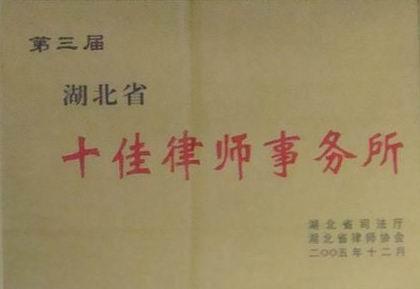 第三届
湖北省
十佳律师事务所
湖北省司法厅
湖北省律师协会
二〇〇五年十二月